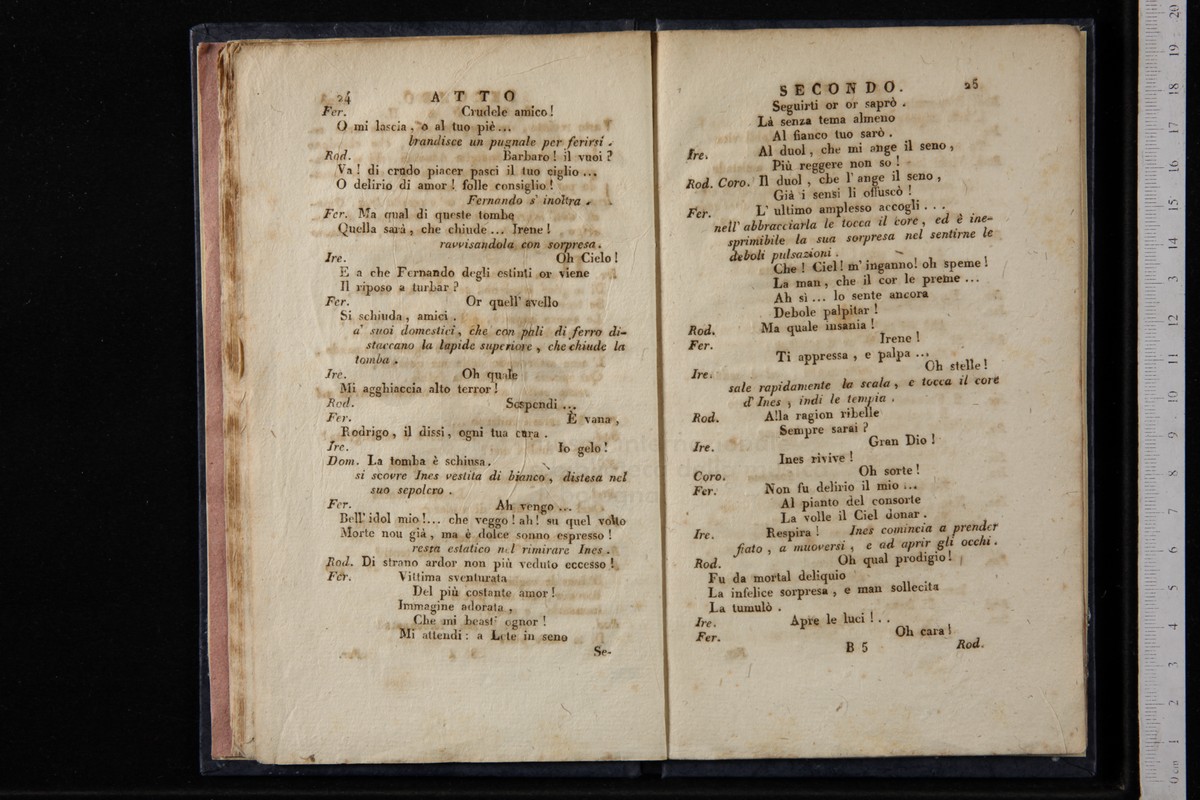 24 ATTO
Fer. Crudele amico!
O mi lascia, o al tuo piè...
brandisce un pugnale per ferirsi.
Rod. Barbaro! il vuoi?
Va! di crudo piacer pasci il tuo ciglio...
O delirio di amor! folle consiglio!
Fernando s' inoltra.
Fer. Ma qual di queste tombe
Quella sarà, che chiude... Irene!
ravvisandola con sorpresa.
Ire. Oh Cielo!
E a che Fernando degli estinti or viene
Il riposo a turbar?
Fer. Or quell' avello
Si schiuda, amici.
a' suoi domestici, che con pali di ferro di-
staccano la lapide superiore, che chiude la
tomba.
Ire. Oh quale
Mi agghiaccia alto terror!
Rod. Sospendi...
Fer. È vana,
Rodrigo, il dissi, ogni tua cura.
Ire. Io gelo!
Dom. La tomba è schiusa.
si scovre Ines vestita di bianco, distesa nel
suo sepolcro.
Fer. Ah vengo...
Bell' idol mio!... che veggo! ah! su quel volto
Morte nou già, ma è dolce sonno espresso!
resta estatico nel rimirare Ines.
Rod. Di strano ardor non più veduto eccesso!
Fer. Vittima sventurata
Del più costante amor!
Immagine adorata,
Che mi beast' ognor!
Mi attendi: a Lete in seno
Se-
SECONDO. 25
Seguirti or or saprò.
Là senza tema almeno
Al fianco tuo sarò.
Ire. Al duol, che mi ange il seno,
Più reggere non so!
Rod. Coro. Il duol, che l' ange il seno,
Già i sensi li offuscò!
Fer. L' ultimo amplesso accogli...
nell' abbracciarla le tocca il core, ed è ine-
sprimibile la sua sorpresa nel sentirne le
deboli pulsazioni.
Che! Ciel! m' inganno! oh speme!
La man, che il cor le preme...
Ah sì... lo sente ancora
Debole palpitar!
Rod. Ma quale insania!
Fer. Irene!
Ti appressa, e palpa...
Ire. Oh stelle!
sale rapidamente la scala, e tocca il core
d' Ines, indi le tempia.
Rod. Alla ragion ribelle
Sempre sarai?
Ire. Gran Dio!
Ines rivive!
Coro. Oh sorte!
Fer. Non fu delirio il mio...
Al pianto del consorte
La volle il Ciel donar.
Ire. Respira! Ines comincia a prender
fiato, a muoversi, e ad aprir gli occhi.
Rod. Oh qual prodigio!
Fu da mortal deliquio
La infelice sorpresa, e man sollecita
La tumulò.
Ire. Apre le luci!..
Fer. Oh cara!
B 5 Rod.